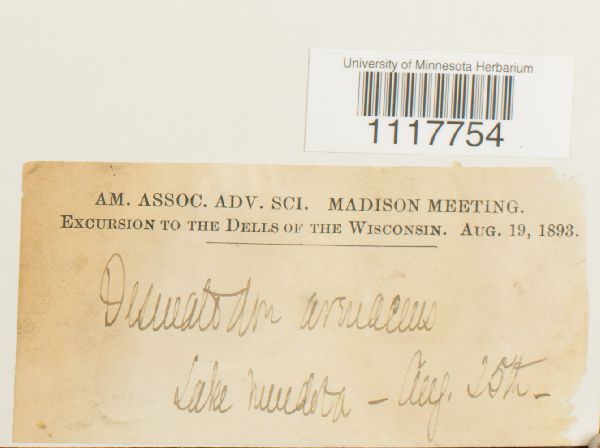 University of Minnesota Herbarium
1117754
AM. ASSOC. ADV. SCI. MADISON MEETING.
EXCURSION TO THE DELLS OF THE WISCONSIN. AUG. 19, 1893.
Desmatodon arenaceus
Lake Mendota – Aug. 25th –